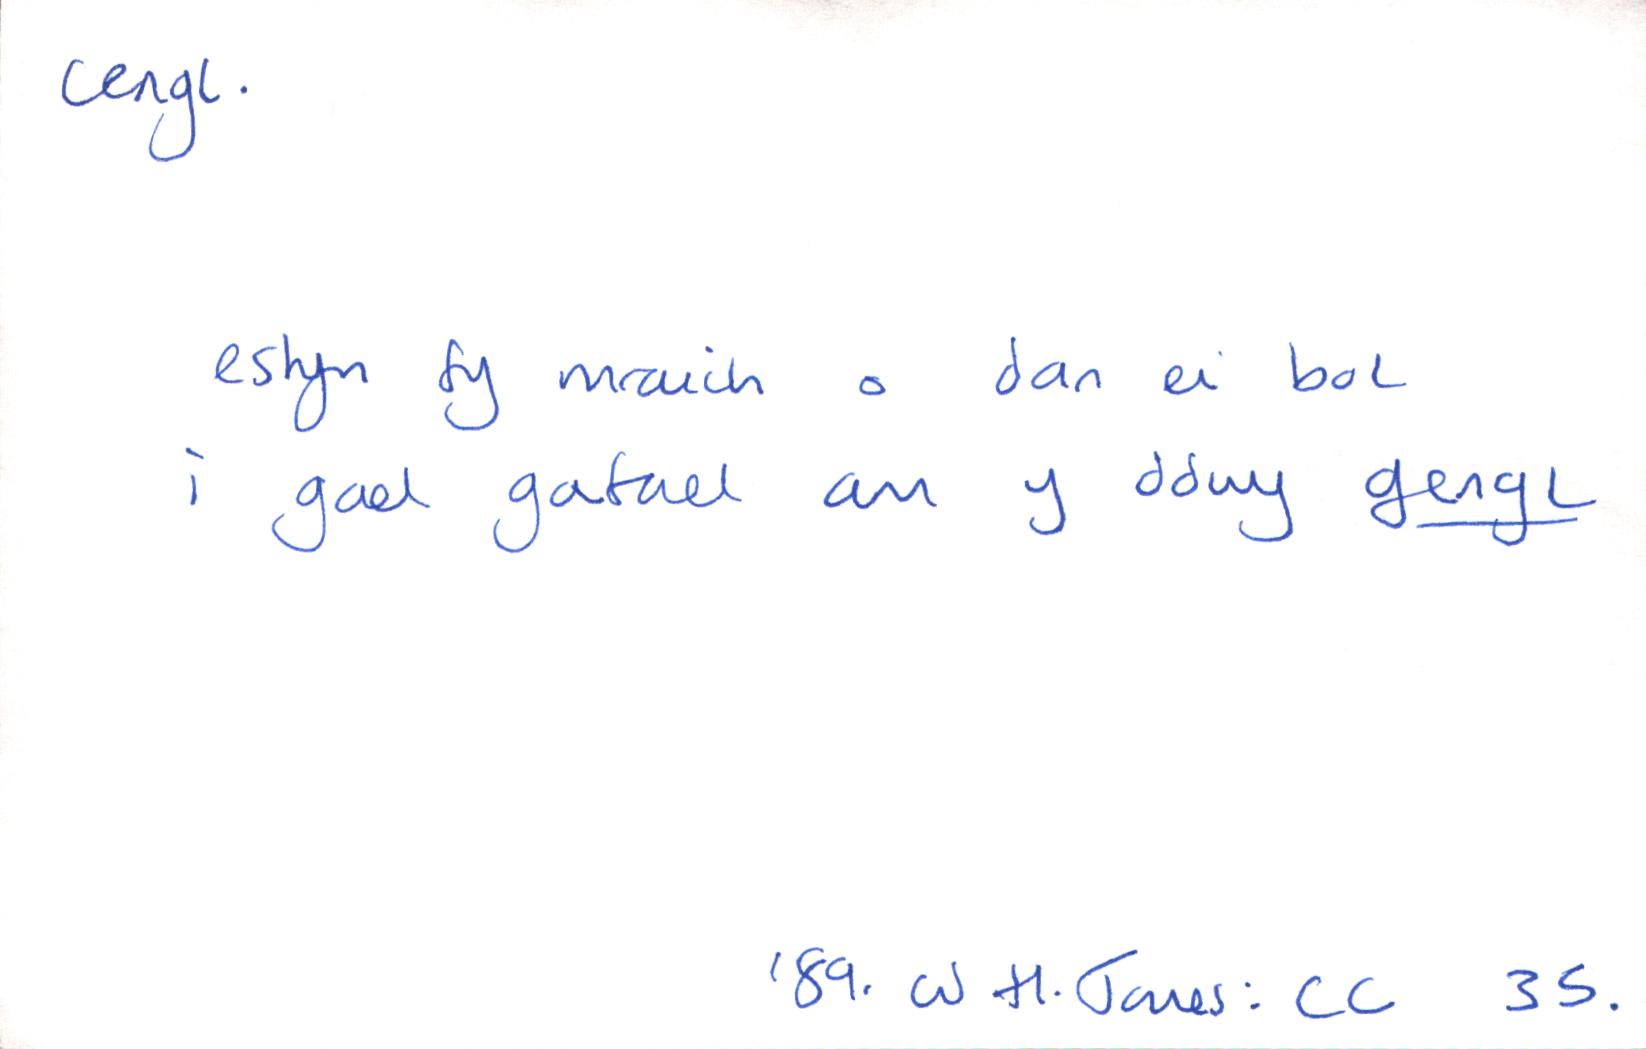 cengl.
estyn fy mraich o dan ei bol
i gael gafael am y ddwy gengl
'89. W H. Jones: CC 35.